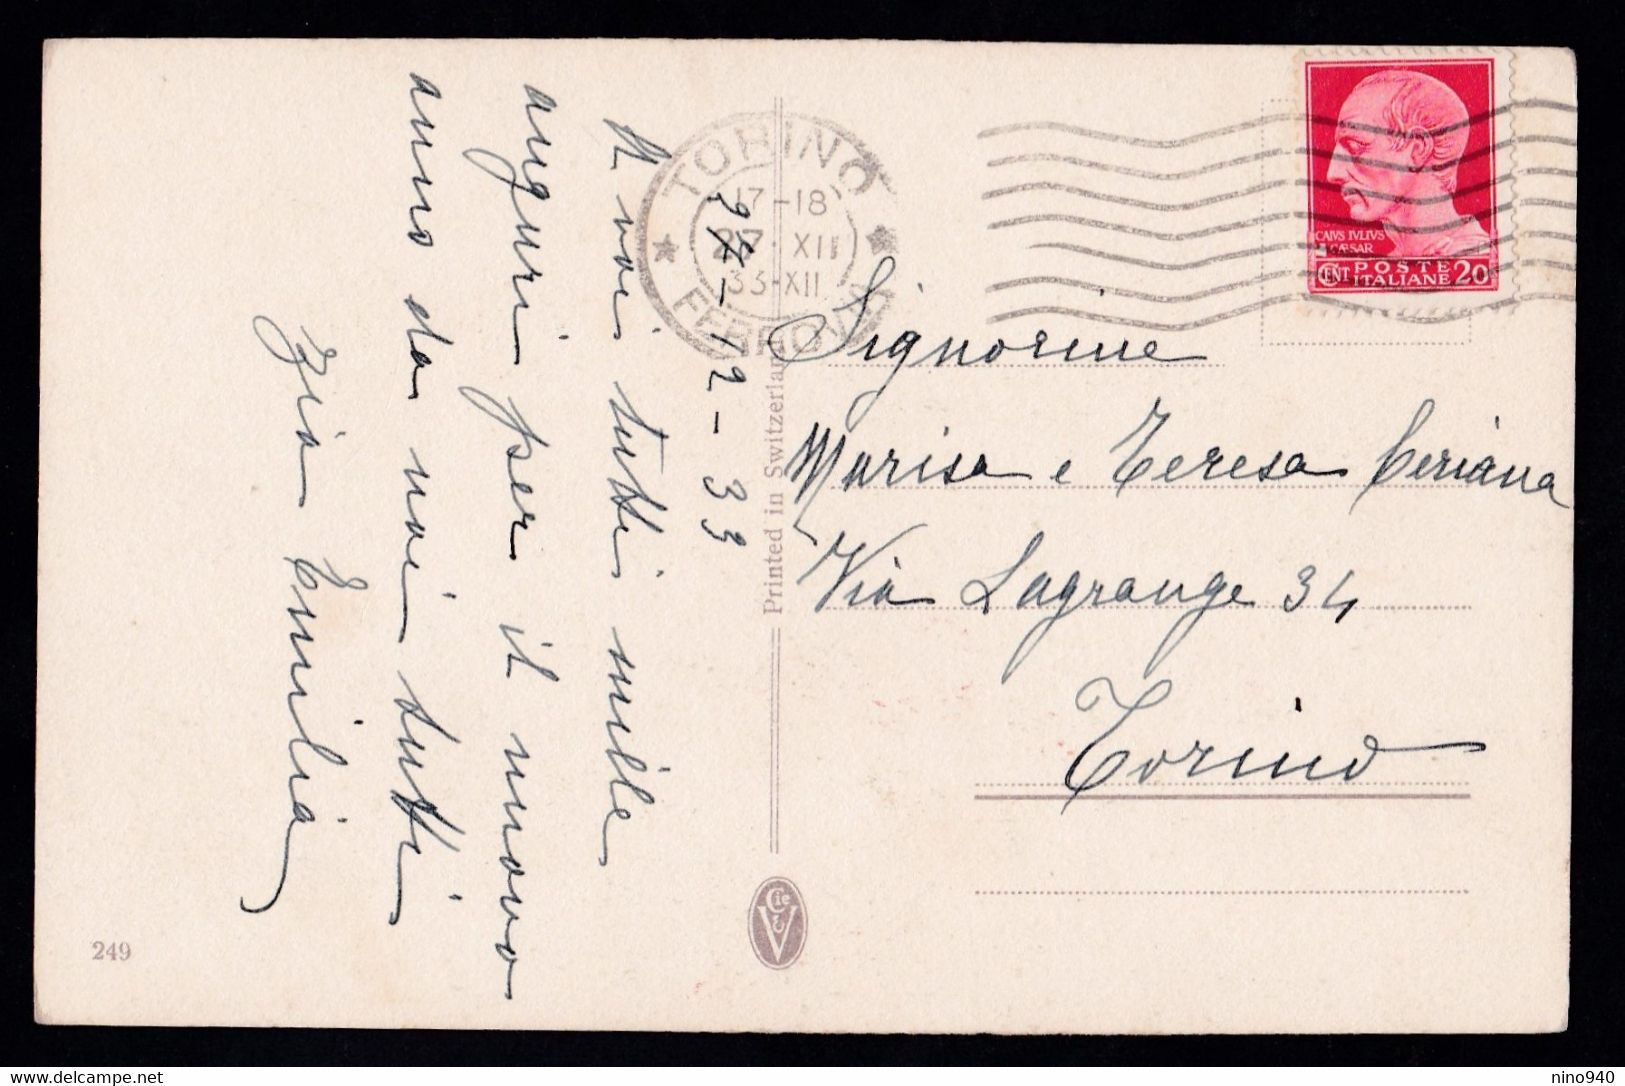 9 - 12 - 33
A voi tutti mille
auguri per il nuovo
anno da noi tutti
Zia Emilia
TORINO
17-18
27·XII
33·XII
FERROVIA
Printed in Switzerland
CAIVS IVLIVS
CAESAR
CENT POSTE ITALIANE 20
Signorine
Marisa e Teresa Ceriana
Via Lagrange 34
Torino
Cie & V
249
nino940